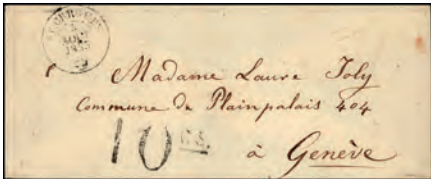 1855
Madame Laure Joly
Commune de Plainpalais 404
10 cs.
à Genève